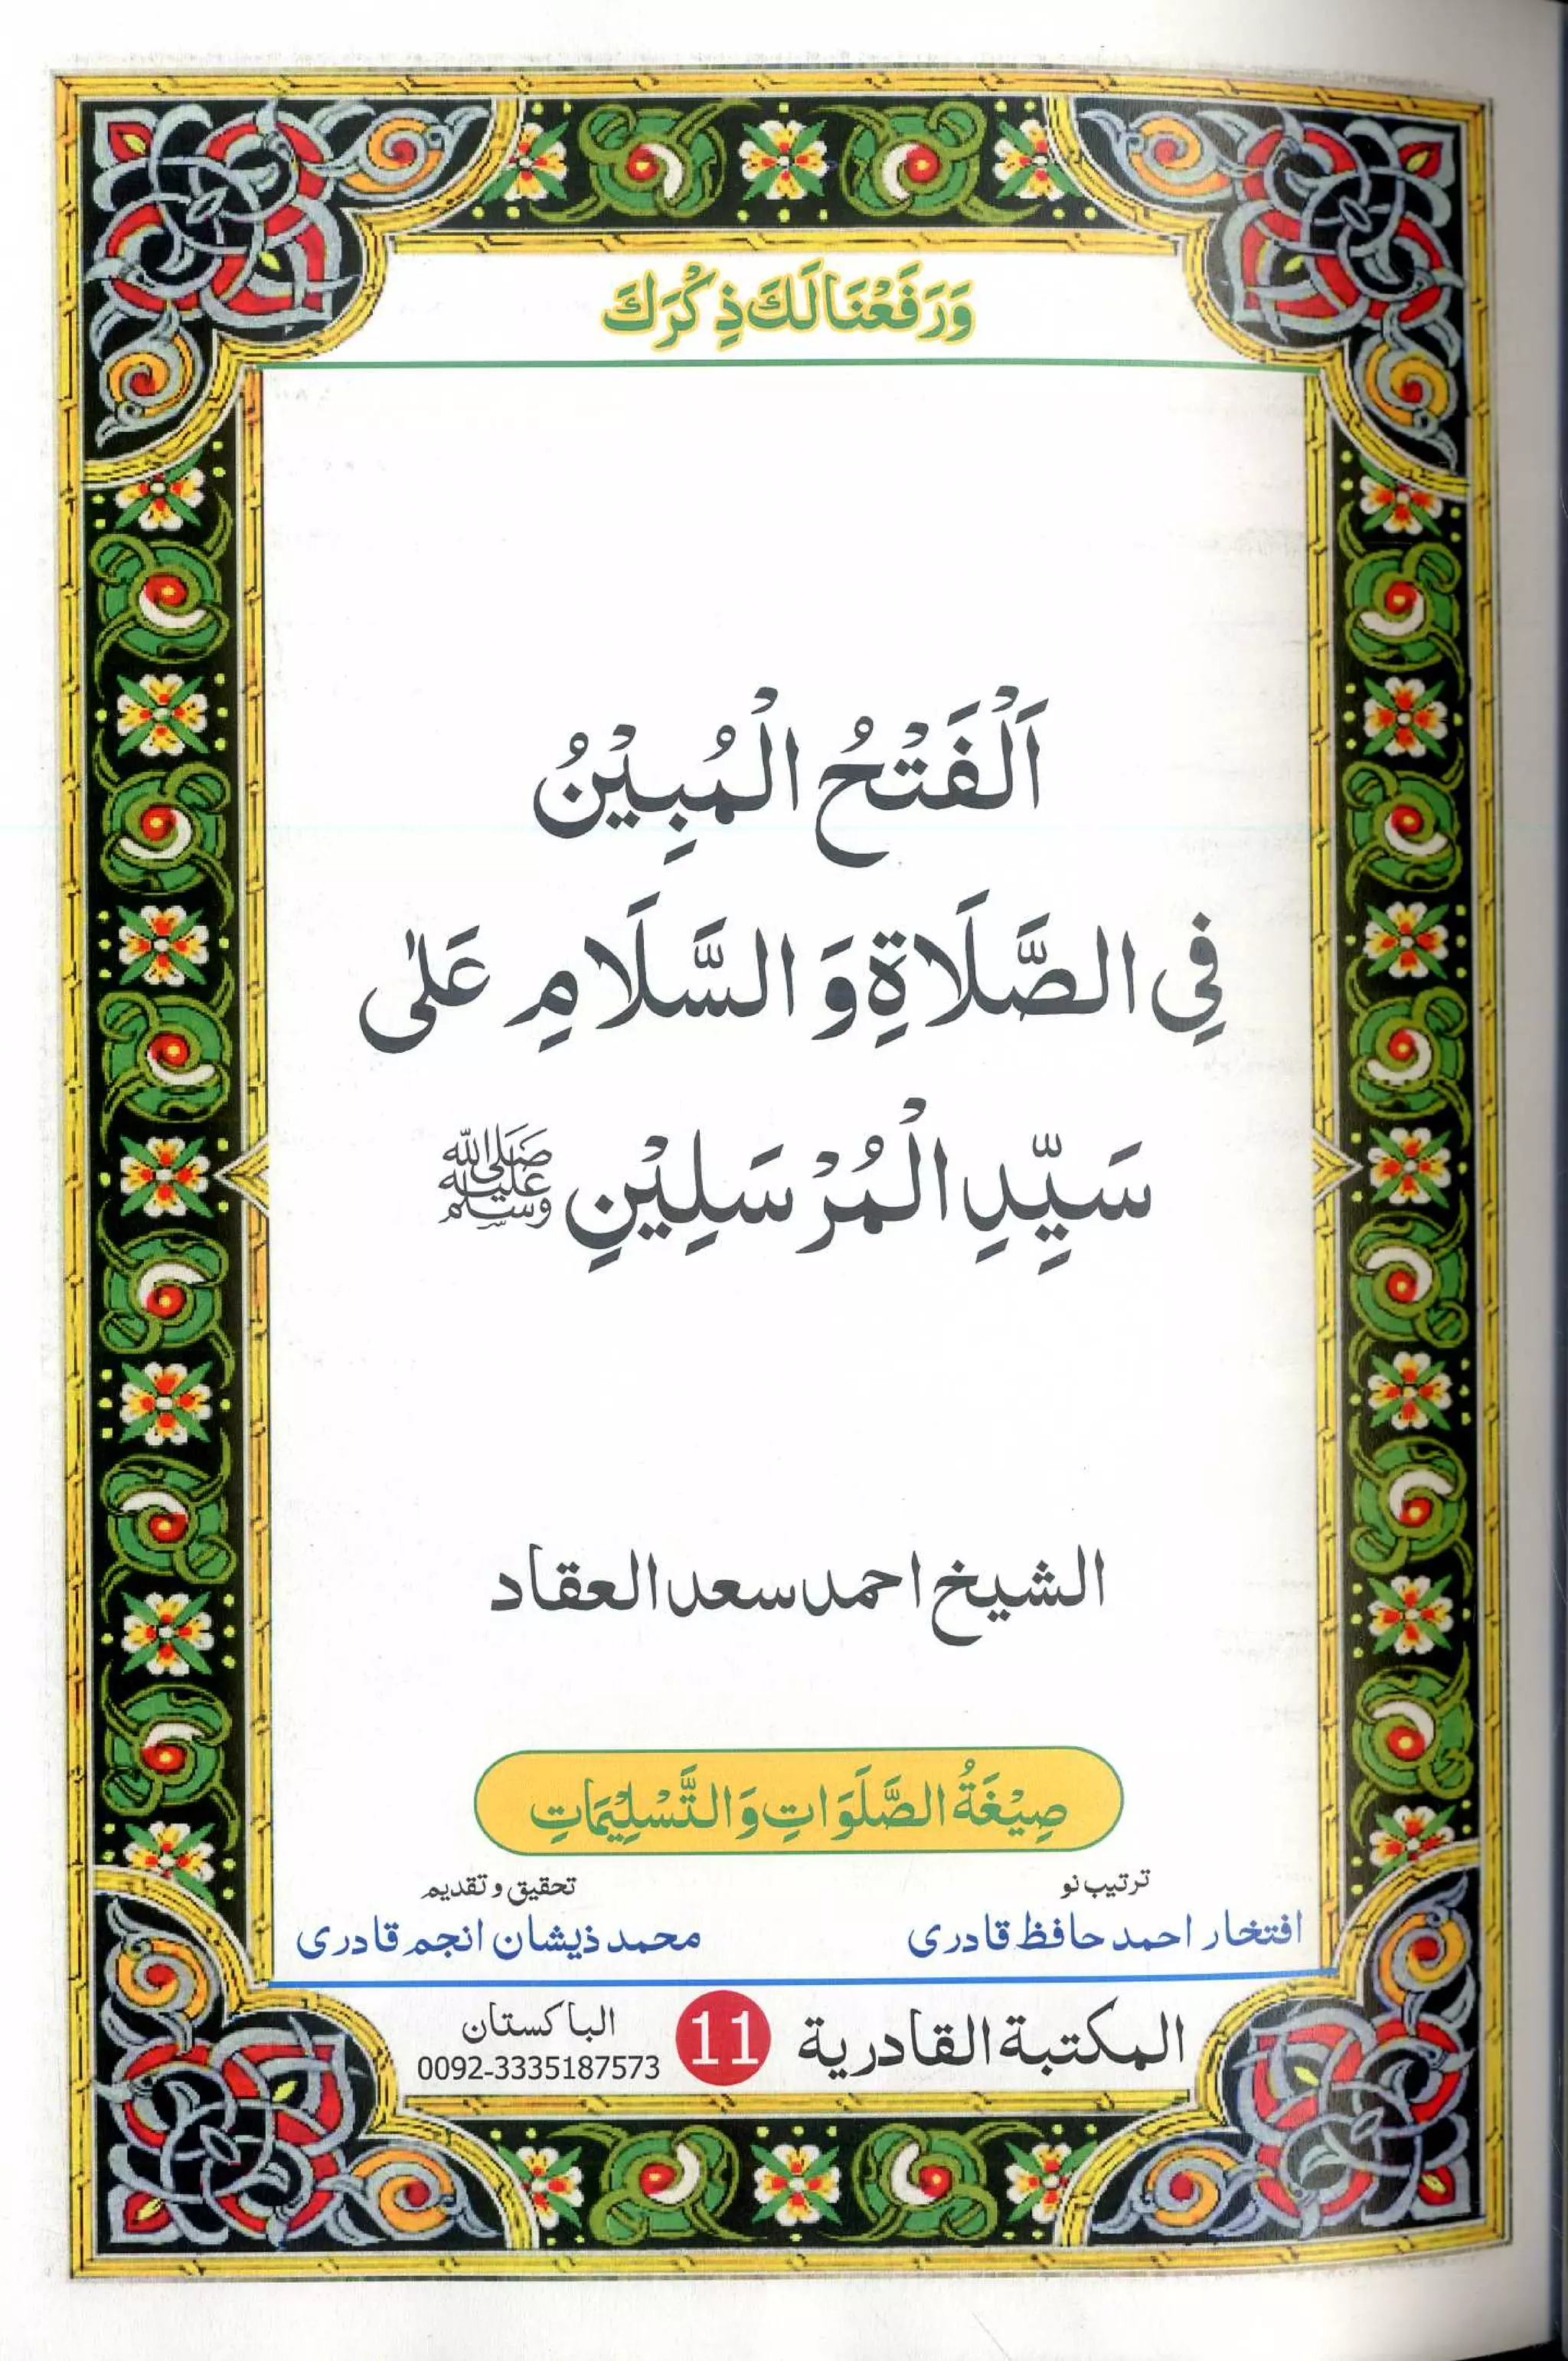 وَرَفَعْنَا لَكَ ذِكْرَكَ
اَلْفَتْحُ الْمُبِيْنُ
فِي الصَّلَاةِ وَ السَّلَامِ عَلٰى
سَيِّدِ الْمُرْسَلِيْنِ ﷺ
الشيخ احمد سعد العقاد
صِيْغَةُ الصَّلَوَاتِ وَالتَّسْلِيْمَاتِ
ترتیب نو
افتخار احمد حافظ قادری
تحقیق و تقدیم
محمد ذیشان انجم قادری
المكتبة القادرية
11
الباكستان
0092-3335187573